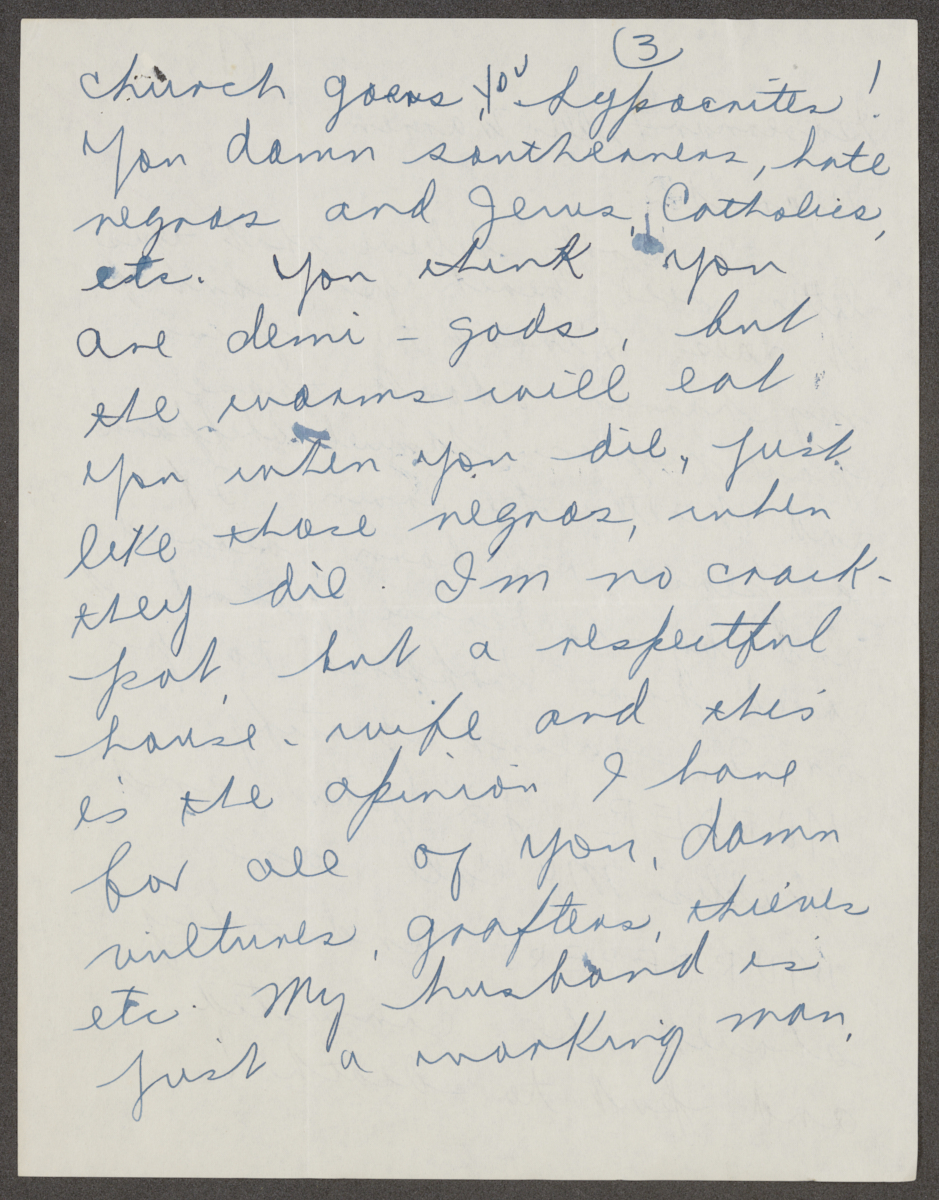 3
church goers, you hypocrites!
You damn southerners, hate
negros and Jews, Catholics,
etc. You think you
are demi-gods, but
the worms will eat
you when you die, just
like those negros, when
they die. I'm no crack-
pot, but a respectful
house-wife and this
is the opinion I have
for all of you, damn
vultures, grafters, thieves
etc. My husband is
just a working man,